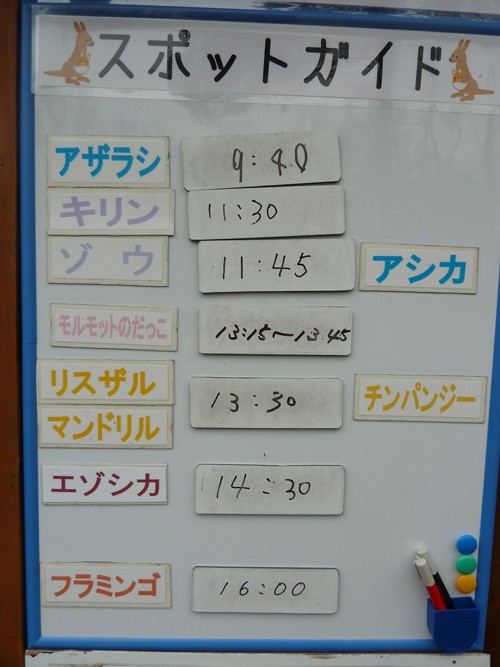 スポットガイド
アザラシ 9:40
キリン 11:30
ゾウ 11:45 アシカ
モルモットのだっこ 13:15〜13:45
リスザル 13:30 チンパンジー
マンドリル
エゾシカ 14:30
フラミンゴ 16:00